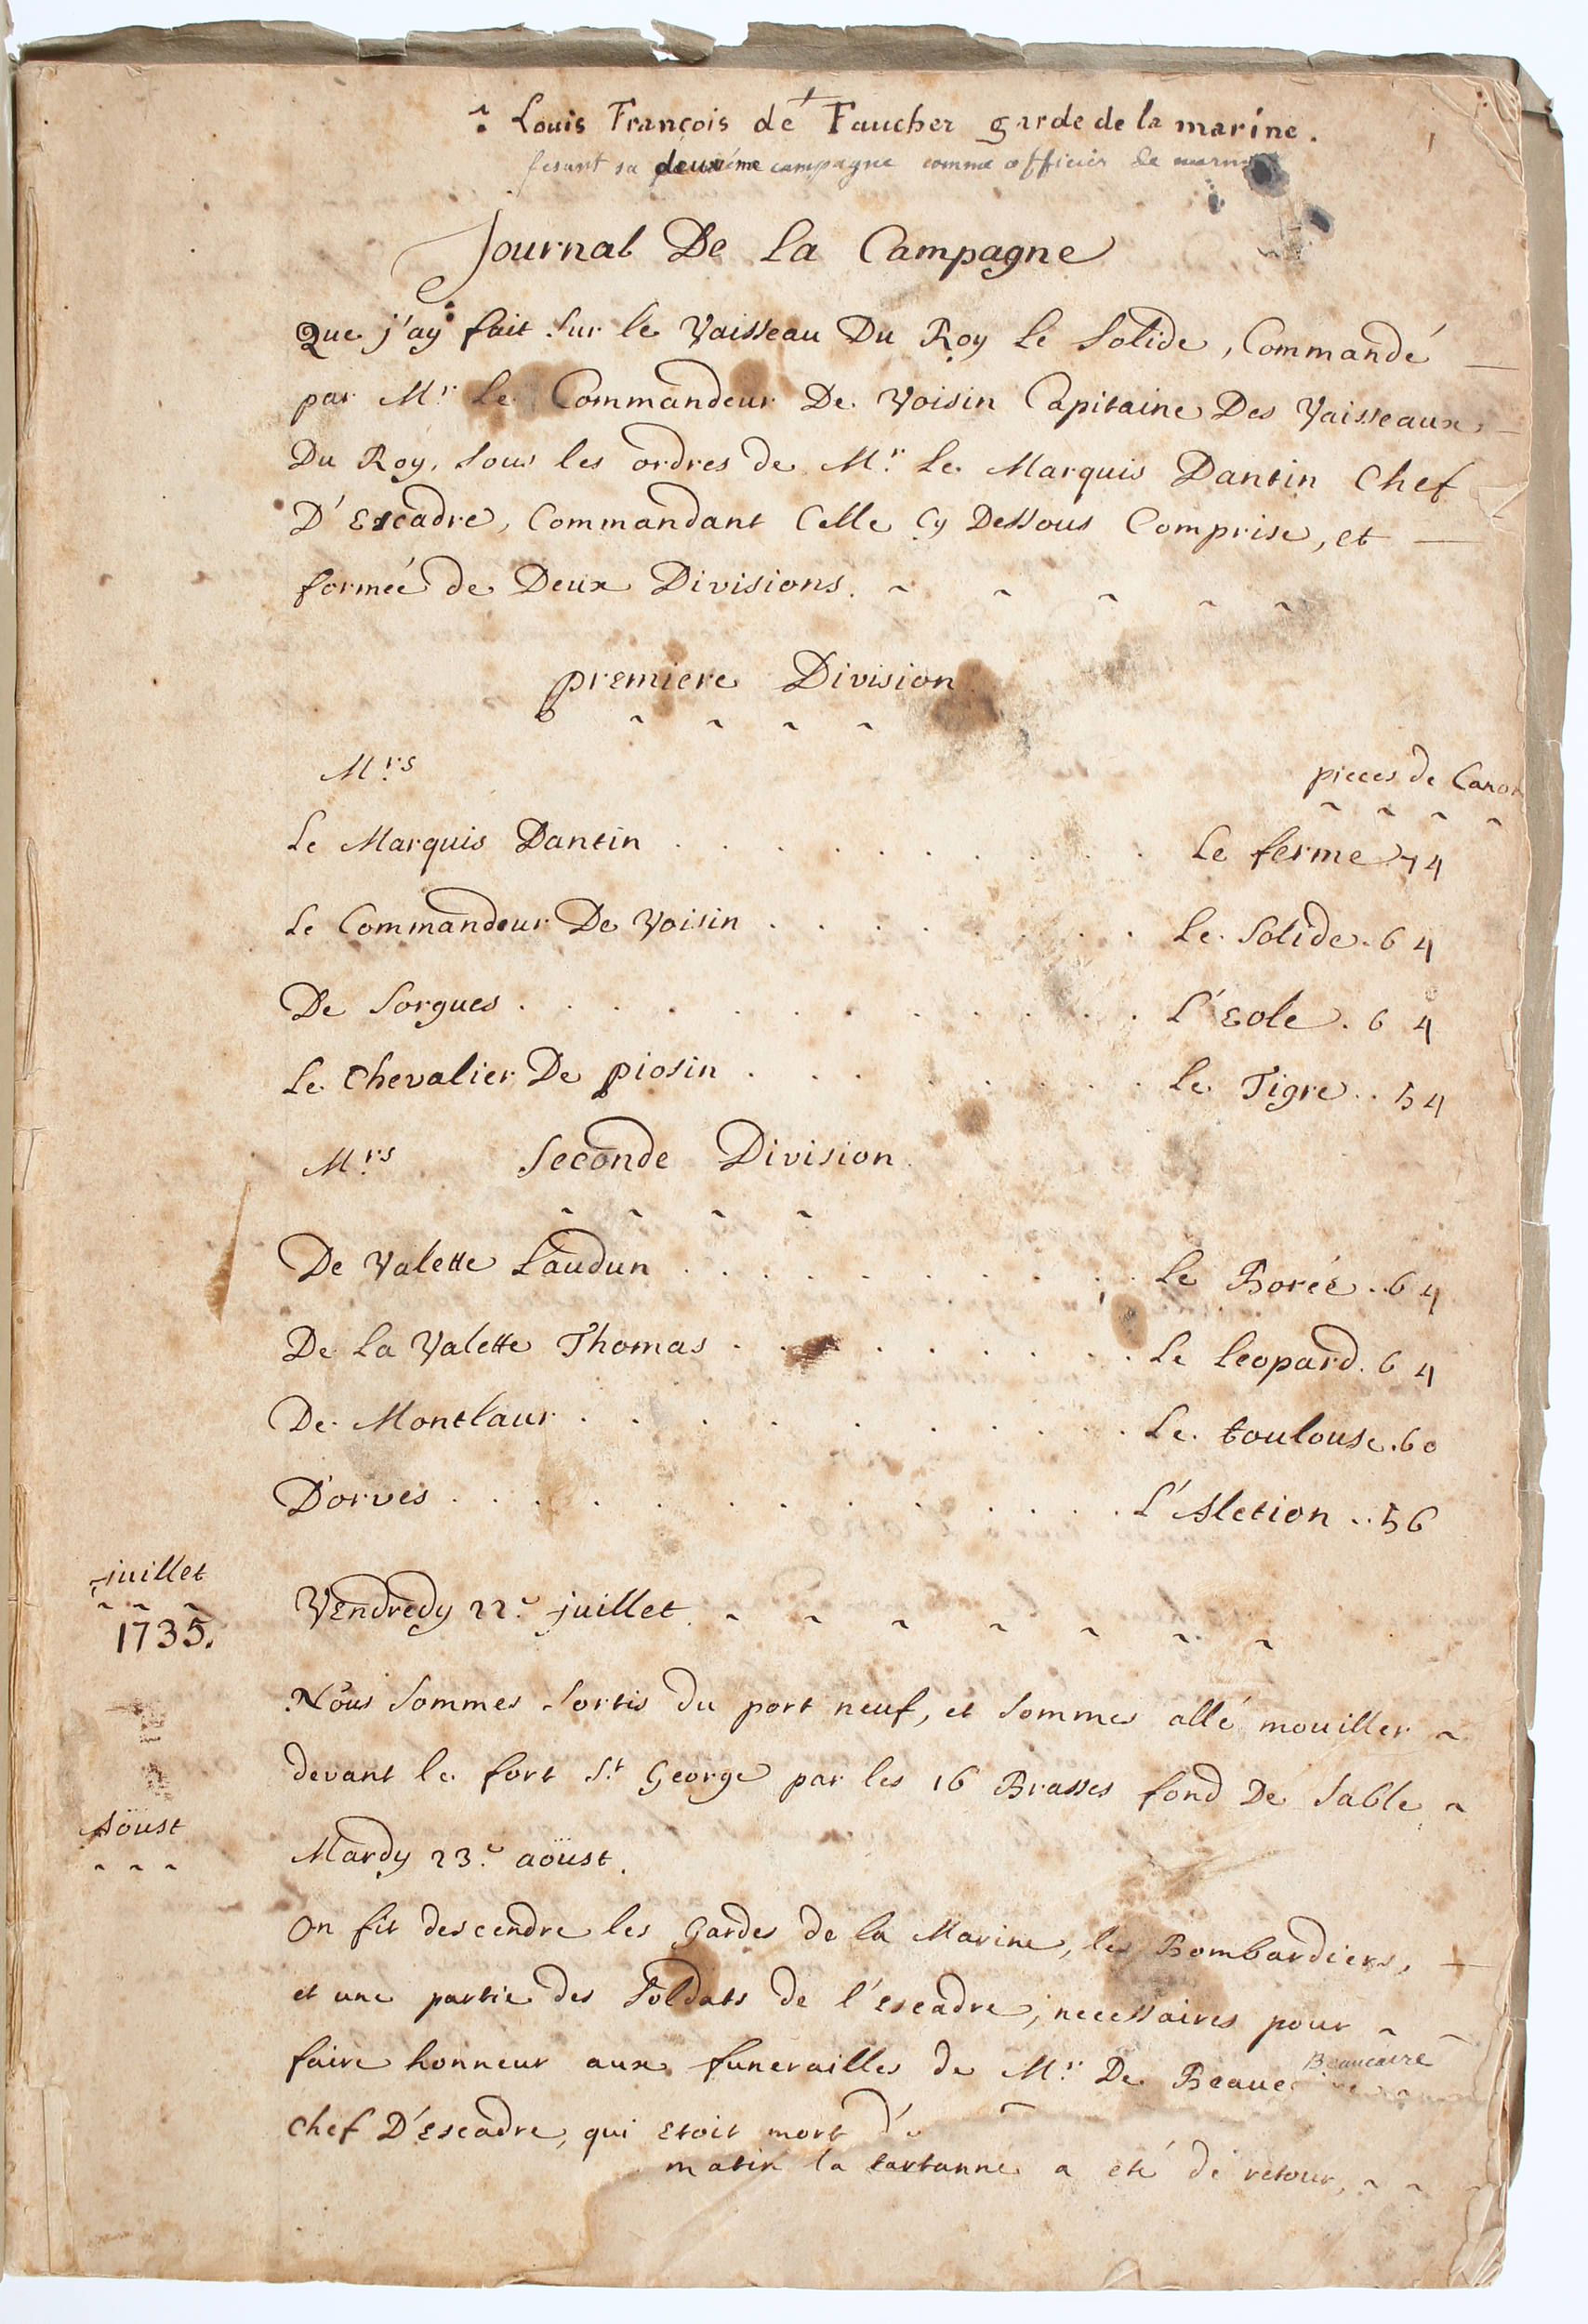 Louis François de Faucher garde de la marine.
fesant sa deuxième campagne comme officier de
Journal De La Campagne
Que j'ay fait sur le Vaisseau Du Roy le Solide, Commandé
par Mr. Le Commandeur De Voisin Capitaine Des Vaisseaux
Du Roy, sous les ordres de Mr. Le Marquis Dantin Chef
D'Escadre, Commandant Celle Cy Dessous Comprise, et
formeé de Deux Divisions.
premiere Division
Mrs
pieces de Canon
Le Marquis Dantin . . . . . . . . . . Le ferme 74
Le Commandeur De Voisin . . . . . . . . Le Solide. 64
De Sorgues . . . . . . . . . . . . L'Eole. 64
Le Chevalier De piosin . . . . . . . . . Le Tigre.. 54
Mrs Seconde Division
De Valette Laudun . . . . . . . . . . Le Boreé.. 64
De La Valette Thomas . . . . . . . . . Le leopard. 64
De Montlaur . . . . . . . . . . Le toulouse. 60
D'orves . . . . . . . . . . . . L'Alction.. 56
juillet
1735.
Vendredy 22e juillet.
Nous sommes sortis du port neuf, et sommes allé mouiller
devant le fort St George par les 16 Brasses fond De sable
Aöust
Mardy 23e aöust.
On fit descendre les Gardes de la Marine, les Bombardiers,
et une partie des Soldats de l'escadre, necessaires pour
faire honneur aux funerailles de Mr. De Beauc
Beaucaire
chef D'Escadre, qui Etoit mort
matin la tartanne a eté de retour,